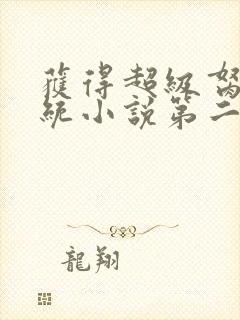 獲得超級
統小說第二
龍翔